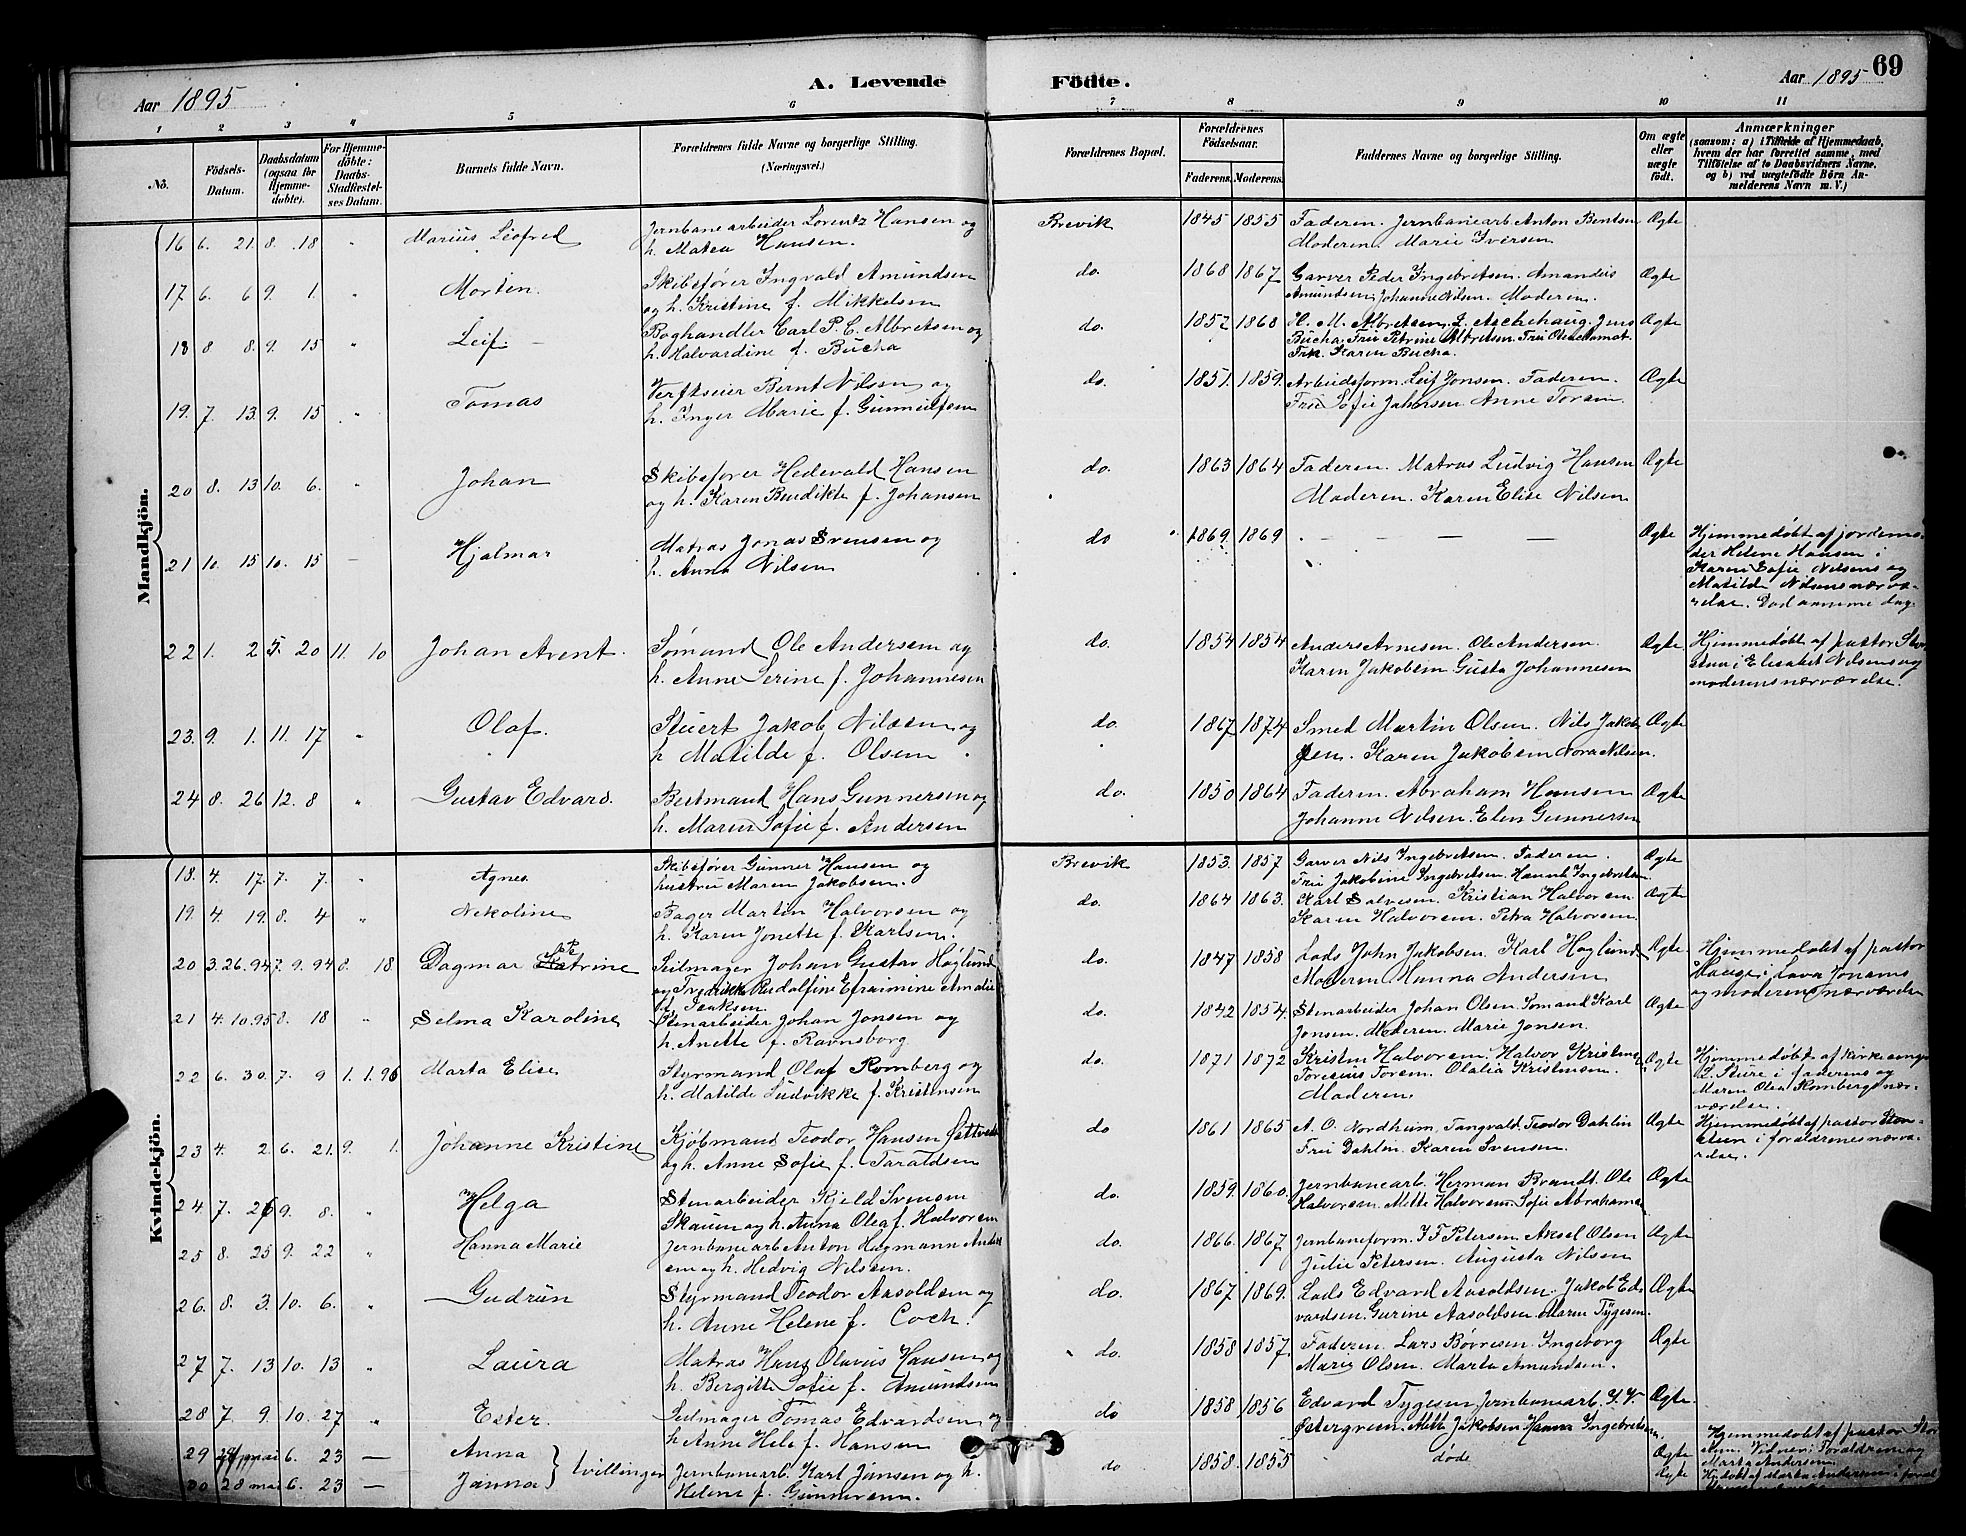 69
Aar 1895
A. Levende Födte.
Aar 1895
1 2 3 4 5 6 7 8 9 10 11
No.
Födsels-Datum.
Daabsdatum (ogsaa for Hjemmedøbte).
For Hjemmedöbte: Daabs-Stadfæstelses Datum.
Barnets fulde Navn.
Forældrenes fulde Navne og borgerlige Stilling.
(Næringsvei.)
Forældrenes Bopæl.
Forældrenes Födselsaar.
Faderens. Moderens.
Faddernes Navne og borgerlige Stilling.
Om ægte eller uægte födt.
Anmærkninger
(saasom: a) i Tilfælde af Hjemmedaab, hvem der har forrettet samme, med Tilföielse af to Daabsvidners Navne, og b) ved uægtefödte Börn Anmelderens Navn m. V.)
Mandkjön.
16 6. 21. 8. 18 " Marius Leofred Jernbanearbeider Lorentz Hansen og Brevik 1845 1855 Faderen. Jernbanearb Anton Bentsen Ægte
h. Matea Hansen. Moderen. Marie Iversen
17 6. 6 9. 1. " Morten. Skibsfører Ingvald Amundsen do. 1868 1867 Garver Peder Ingebretsen. Amandus Ægte
og h. Kristine f. Mikkelsen Amundsen, Johanne Nilsen. Moderen.
18 8 8. 9. 15 " Leif. Boghandler Carl P. C. Albretsen og do. 1857 1868 H. M. Albretsen, L. Aschehaug. Jens Ægte
h. Halvardine f. Bucha Bucha. Fru Petrine Albretsen. Fru
Frk. Karen Bucha.
19. 7. 13. 9. 15 " Tomas Verftseier Bernt Nilsen og do. 1851. 1859. Arbeidsform. Leif Jonsen. Faderen. Ægte
h. Inger Marie f. Fru Sofie Anne
20 8. 13 10. 6. " Johan Skibsfører Hedevald Hansen do. 1863 1864 Faderen. Matros Ludvig Hansen Ægte
og h. Karen Bendikte f. Johansen Moderen. Karen Elise Nilsen
21 10. 15 10. 15 — Hjalmar Matros Jonas Svensen og do 1869. 1869 — — — Ægte Hjemmedøbt af jordemo-
h. Anna Nilsen der Helene Hansen i
Karen Sofie Nilsens og
Matilde Nilsens nærvæ-
relse. Død samme dag.
22 1. 2 5. 20 11. 10 Johan Arent. Sømand Ole Andersen og do. 1854 1854 Anders Arnesen. Ole Andersen. Ægte Hjemmedøbt af pastor
h. Anne Serine f. Johannesen Karen Jakobsen Gusta Johannesen i Elisabet Nilsens og
moderens nærværelse.
23. 9. 1. 11. 17 " Olaf. Stuert Jakob Nilssen og do. 1867 1874 Smed Martin Olsen. Nils Jakob Ægte
h Matilde f. Olsen sen. Karen Jakobsen Nora Nilsen.
24 8. 26 12. 8 " Gustav Edvard. Bestmand Hans Gunnersen og do. 1850 1864 Faderen. Abraham Hansen Ægte
h. Maren Sofie f. Andersen Johanne Nilsen. Elen Gunnersen
Kvindekjön.
18. 4. 17. 7. 7. " Agnes Skibsfører Gunner Hansen og Brevik 1853. 1857. Garver Nils Ingebretsen. Faderen. Ægte
hustru Maren Jakobsen. Fru Jakobine Ingebretsen. Hanna Ingebretsen.
19. 4. 19. 8. 4 " Nikoline Fager Martin Halvorsen og do. 1864 1863. Karl Salvesen. Kristian Halvorsen Ægte
h. Karen Jonette f. Karlsen. Karen Halvorsen. Petra Halvorsen.
20 3. 26. 94 7. 9. 94 8. 18 Dagmar Katrine Seilmager Johan Gustav Høglund do. 1847 1858 Lods John Jakobsen. Karl Høglund Ægte Hjemmedøbt af pastor
og Fredrikke Rudolfine Efraimine Amalie Moderen Hanna Andersen Hauge i Lava Jonsens
f. Isaksen. og moderens nærværelse
21 4. 10. 95 8. 18 " Selma Karoline Stenarbeider Johan Jonsen og do. 1842 1854. Stenarbeider Johan Olsen. Sømand Karl Ægte
h. Anette f. Ravnsborg Jonsen. Moderen. Marie Jonsen.
22 6. 30. 7. 9 1. 1. 96 Marta Elise Styrmand Olaf Romberg og do. 1871 1872 Kristen Halvorsen. Halvor Kristensen Ægte Hjemmedøbt af kirkesanger
h. Matilde Ludvikke f. Kristensen Toresen. Olalia Kristensen. L. Sture i faderens og
Moderen. Maren Olea Rombergs nær-
værelse.
23 4. 2. 6. 21. 9. 1. Johanne Kristine Kjøbmand Teodor Hansen do 1861 1865 A. O. Nordheim, Tangvald, Teodor Dahlin Ægte Hjemmedøbt af pastor
og h. Anne Sofie f. Taraldsen Fru Dahlin. Karen Svensen. i forældrenes nærvæ-
relse.
24 7. 26 9. 8. " Helga Stenarbeider Kjeld Svensen do. 1859. 1860. Jernbanearb. Herman Brandt. Ole Ægte
Skauen og h. Anna Olea f. Halvorsen Halvorsen. Mette Halvorsen. Sofie Abrahamsen
25 8. 25 9. 22 " Hanna Marie Jernbanearb Anton Hagmann Anders do. 1866. 1867. Jernbaneform. J F Petersen. Aksel Olsen Ægte
sen og h. Hedvig Nilssen. Julie Petersen. Augusta Nilsen
26. 8. 3. 10. 6. " Gudrun Styrmand Teodor Aasoldsen og do. 1867 1869. Lods Edvard Aasoldsen. Jakob Ed- Ægte
h. Anne Helene f. Coch. vardsen. Gurine Aasoldsen Maren Tygesen.
27 7. 13 10. 13 " Laura Matros Hans Olavus Hansen og do. 1858 1857. Faderen. Lars Børresen. Ingeborg Ægte
h. Bergitte Sofie f. Amundsen Marie Olsen. Marta Amundsen.
28 7. 9. 10. 27 " Ester. Seilmager Tomas Edvardsen og do 1858 1856 Edvard Tygesen. Jernbanearb. Ægte.
h Anne Hele f. Hansen Østergreen. Jakobsen. Hanna Ingebretsen.
29 mai 6. 23 — Anna } tvillinger Jernbanearb. Karl Jansen og h. do 1858. 1855 døde Ægte Hjemmedøbt af pastor
30 28 mai 6. 23 — Janna Helene f. Gunnersen. Ægte Vidner: Forældrene og
Marta Andersen
Hjdøbt af Marta Andersen i